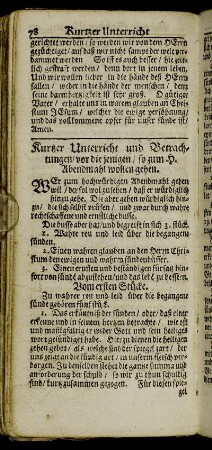 78 Kurtzer Unterricht
gerichtet werden / so werden wir von dem HErrn
gezüchtiget / auf daß wir nicht sampt der welt ver-
dammet werden. So ist es auch besser / hie zeit-
lich gestraft werden / denn dort in jenem leben.
Und wir wollen lieber in die hände des HErrn
fallen / weder in die hände der menschen / denn
seine barmhertzigkeit ist sehr groß. O gütiger
Vater / erhalte uns in warem glauben an Chri-
stum JEsum / welcher ist die ewige versühnung/
und das vollkommene opfer für unser sünde ist/
Amen.
Kurtzer Unterricht und Betrach-
tungen / vor die jenigen / so zum H.
Abendmahl wollen gehen.
WEr zum hochwürdigen Abendmahl gehen
wil / der sol wol zusehen / daß er würdiglich
hinzu gehe. Die aber gehen würdiglich hin-
zu / die sich selbst prüfen / und zwar durch wahre
rechtschaffene und ernstliche busse.
Die busse aber hat / und begreift in sich 3. stück.
1. Wahre reu und leid über die begangene
sünden.
2. Einen wahren glauben an den Herrn Chri-
stum den ewigen und wahren sündenbüsser.
3. Einen ernsten und beständigen fürsatz hin-
fort von sünden abzustehen / und das leben zu bessern.
Vom ersten Stücke.
Zu wahrer reu und leid über die begangene
sünde gehöret:
1. Das erkäntniß der sünden / oder / daß einer
erkenne und in seinem hertzen betrachte / wie oft
und mannigfaltig er wider Gott und sein heiliges
wort gesündiget habe. Hierzu dienen die heiligen
zehen gebot / als welche sind der spiegel zart / der
uns zeiget an die sündig art / in unserm fleisch ver-
borgen. In denselben stehet die gantze summa und
anforderung der schuld / so wir zu thun schuldig
sind / kurtz zusammen gezogen. Für diesen spie-
gel